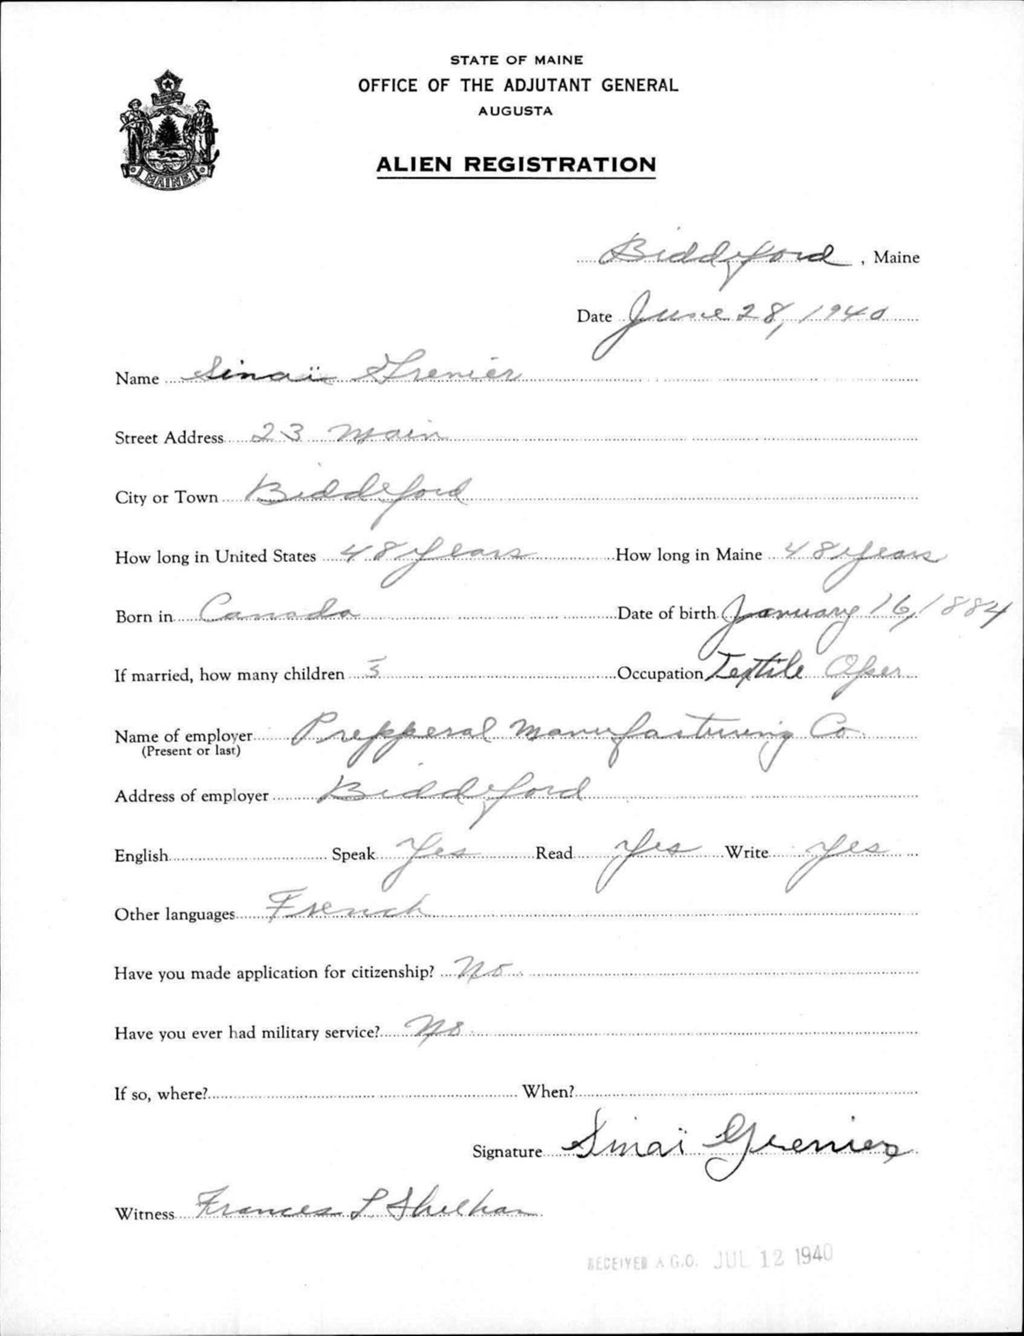 STATE OF MAINE
OFFICE OF THE ADJUTANT GENERAL
AUGUSTA
ALIEN REGISTRATION
MAINE
Biddeford, Maine
Date June 28, 1940
Name Sinaï Grenier
Street Address 23 Main
City or Town Biddeford
How long in United States 48 years How long in Maine 48 years
Born in Canada Date of birth January 16, 1884
If married, how many children 3 Occupation Textile Oper
Name of employer Prepperal Manufacturing Co.
(Present or last)
Address of employer Biddeford
English Speak Yes Read Yes Write Yes
Other languages French
Have you made application for citizenship? No
Have you ever had military service? No
If so, where? When?
Signature Sinaï Grenier
Witness Frances L
RECEIVED A.G.O. JUL 12 1940